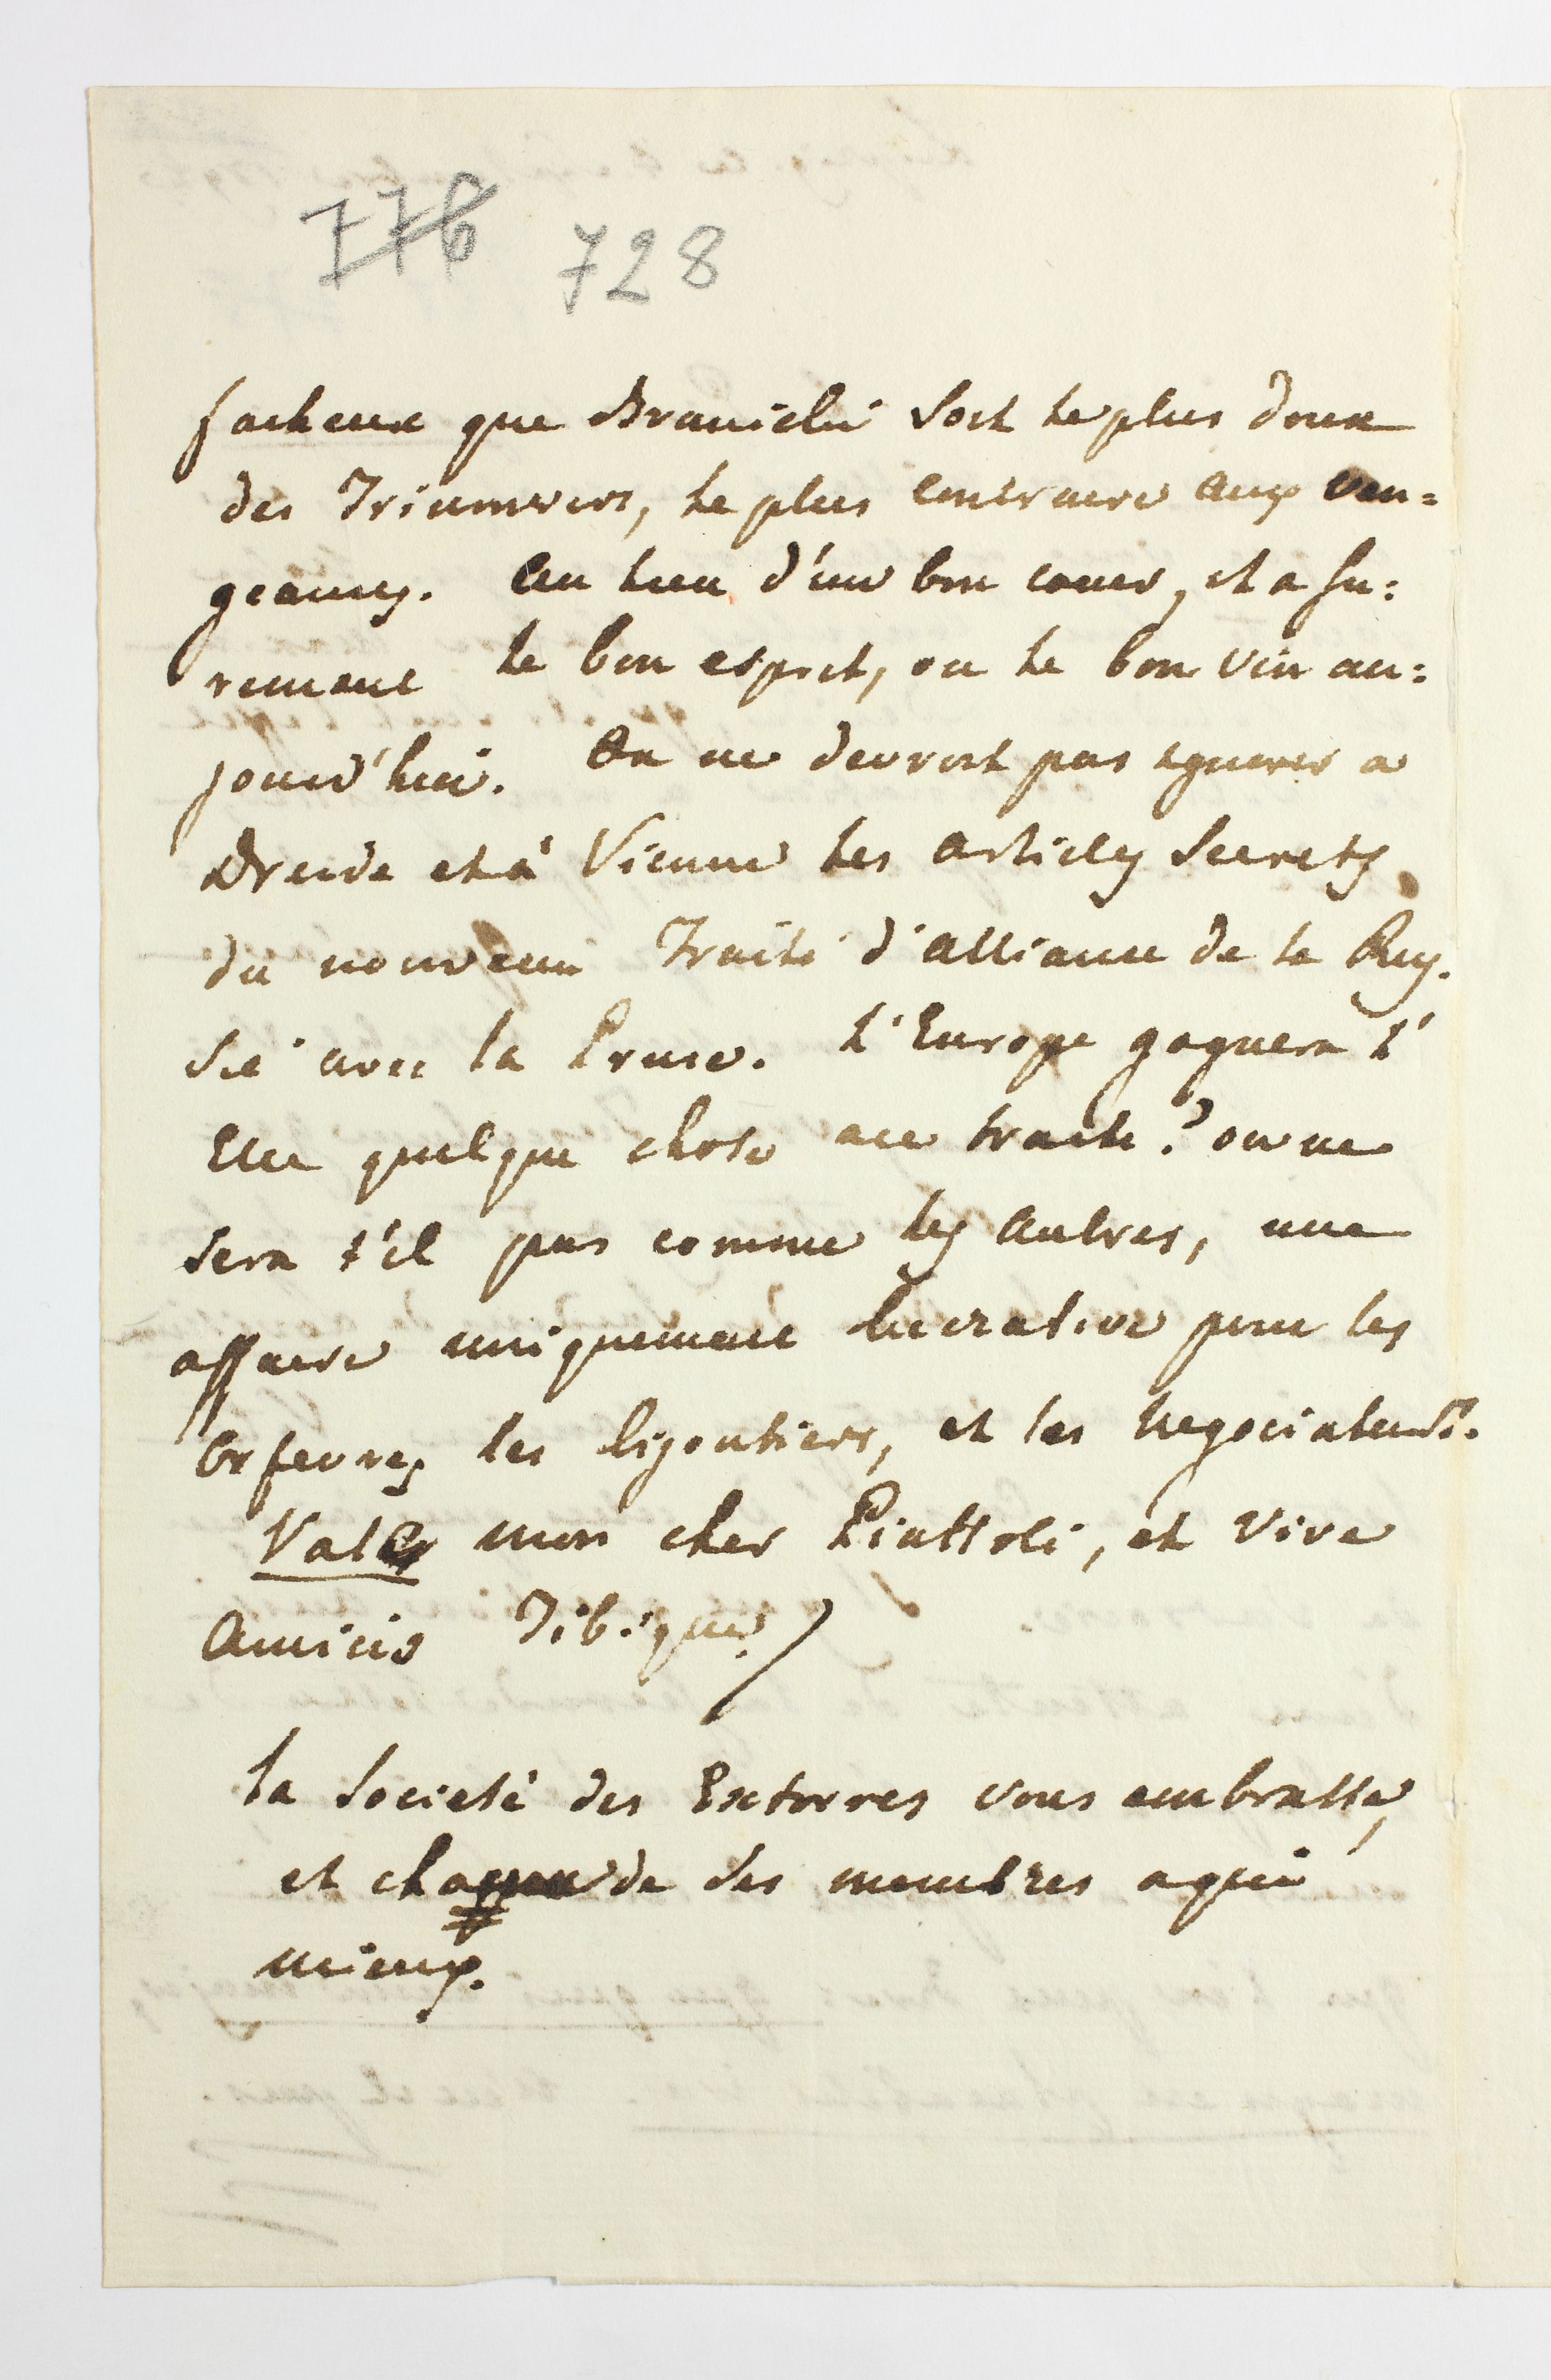 776 728
facheux que Branicki soit le plus doux
des Triumvirs, le plus contraire aux ven=
geances. Au lieu d'un bon coeur, il a su:
rement le bon esprit, ou le bon vin au:
jourd'hui. On ne devroit pas ignorer a
Dresde et à Vienne les articles secrets
du nouveau Traité d'alliance de la Rus.
sie avec la Prusse. L'Europe gagnera t'
Elle quelque chose a ce traité? ou ne
sera t'il pas comme les autres, une
affaire uniquement lucrative pour les
Orfevres, les bijoutiers, et les Negociateurs.
Vale mon cher Piattoli, et vive
Amicis Tibique!
La Societé des Extorres vous embrasse,
et chacun de ses membres a qui
mieux.